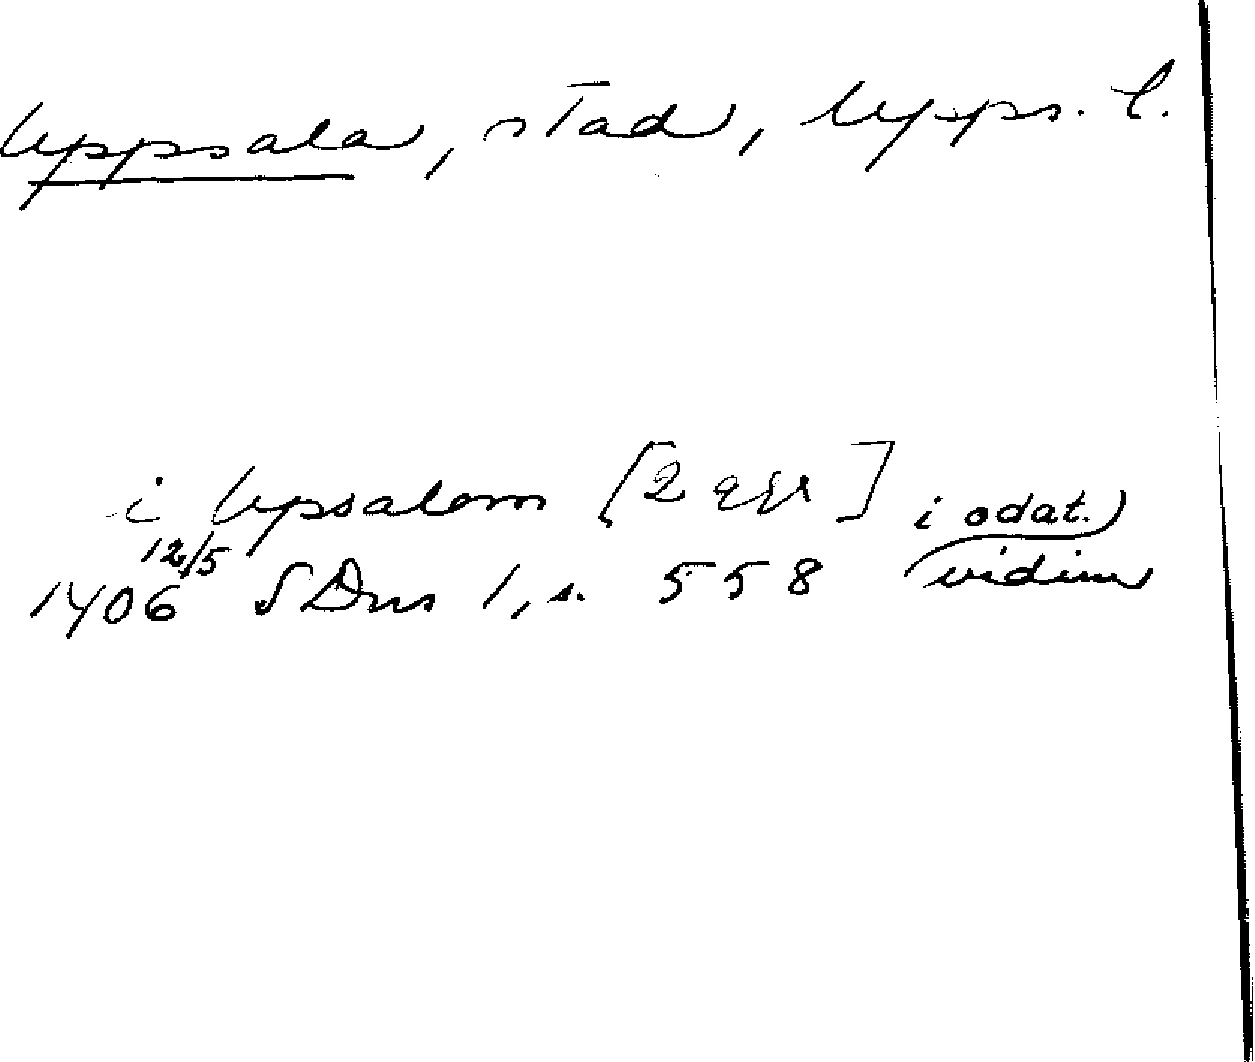 Uppsala, stad, Upps. l.
i Upsalom [2 ggr] i odat.
12/5
1406 SDns 1, s. 558 vidim